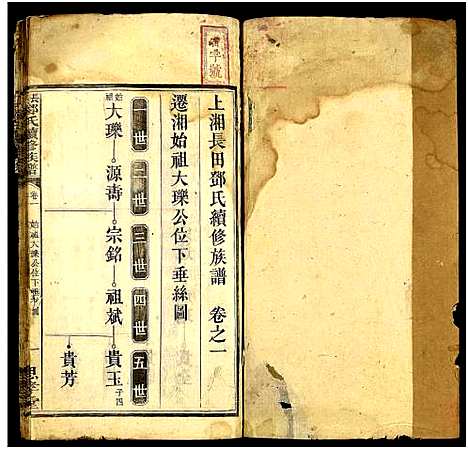 上湘長田鄧氏續修族譜 卷之一
遷湘始祖大瓅公位下垂絲圖
一世 二世 三世 四世 五世
始祖 大瓅 源壽 宗銘 祖斌 貴玉 子四
貴芳
長田鄧氏續修族譜 卷一 始祖大瓅公位下垂絲圖 一
字號